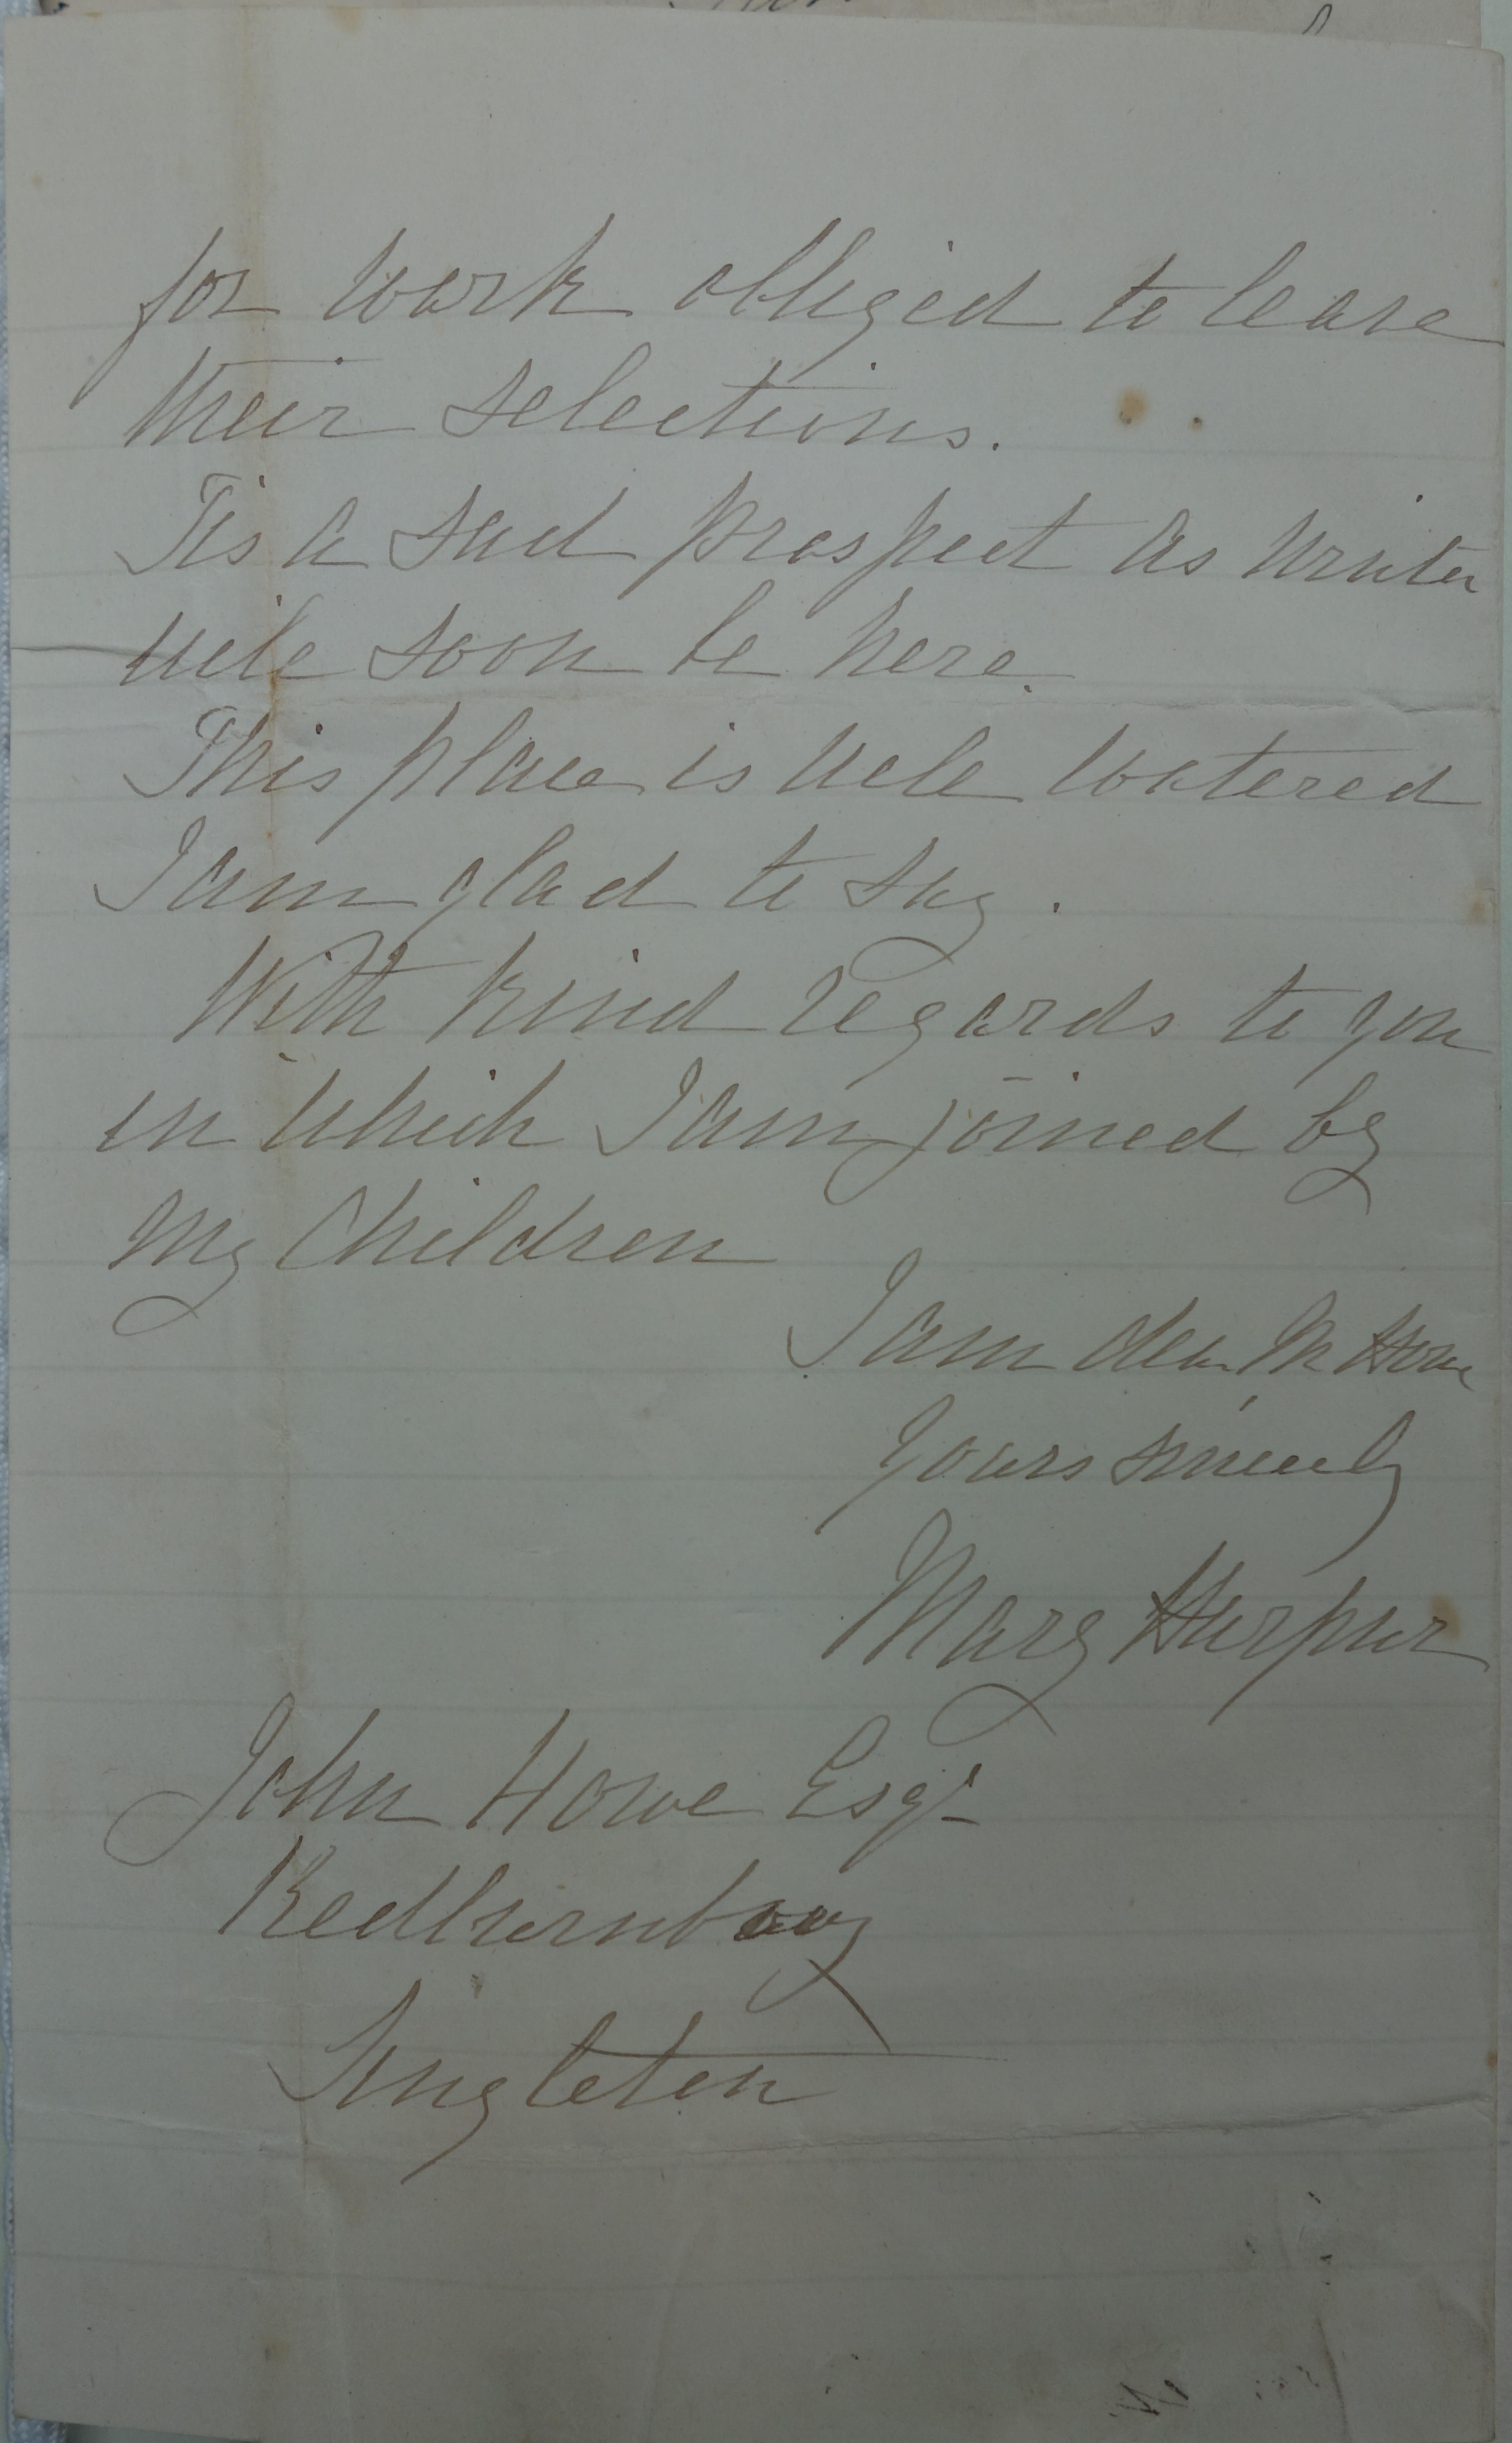 for work obliged to leave
their selections.
Tis a sad prospect as Winter
will soon be here.
This place is well watered
I am glad to say.
With kind regards to you
in which I am joined by
my Children
I am dear Mr Howe
Yours sincerely
Mary Harpur
John Howe Esqr
Redbournbury
Singleton